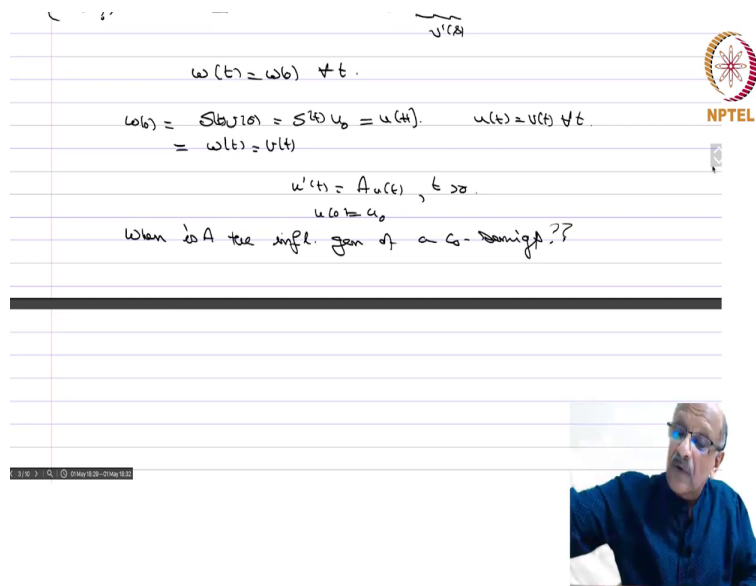 v'(s)
w(t) = w(0) ∀ t.
NPTEL
w(0) = S(t)v(0) = S(t) u₀ = u(t). u(t) = v(t) ∀ t.
= w(t) = v(t)
u'(t) = A u(t), t > 0.
u(0) = u₀
When is A the infl. gen of a C₀-semigp.??
3/10 01 May 18:29—01 May 18:32